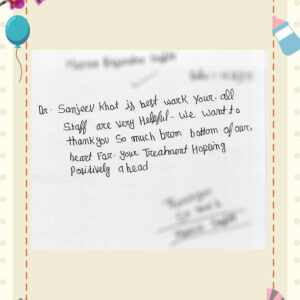 Dr. Sanjeev Khot is best work Your. all
Staff are very Helpful - We want to
thankyou So much from bottom of our,
heart For. Your Treatment Hopeing
Positively ahead